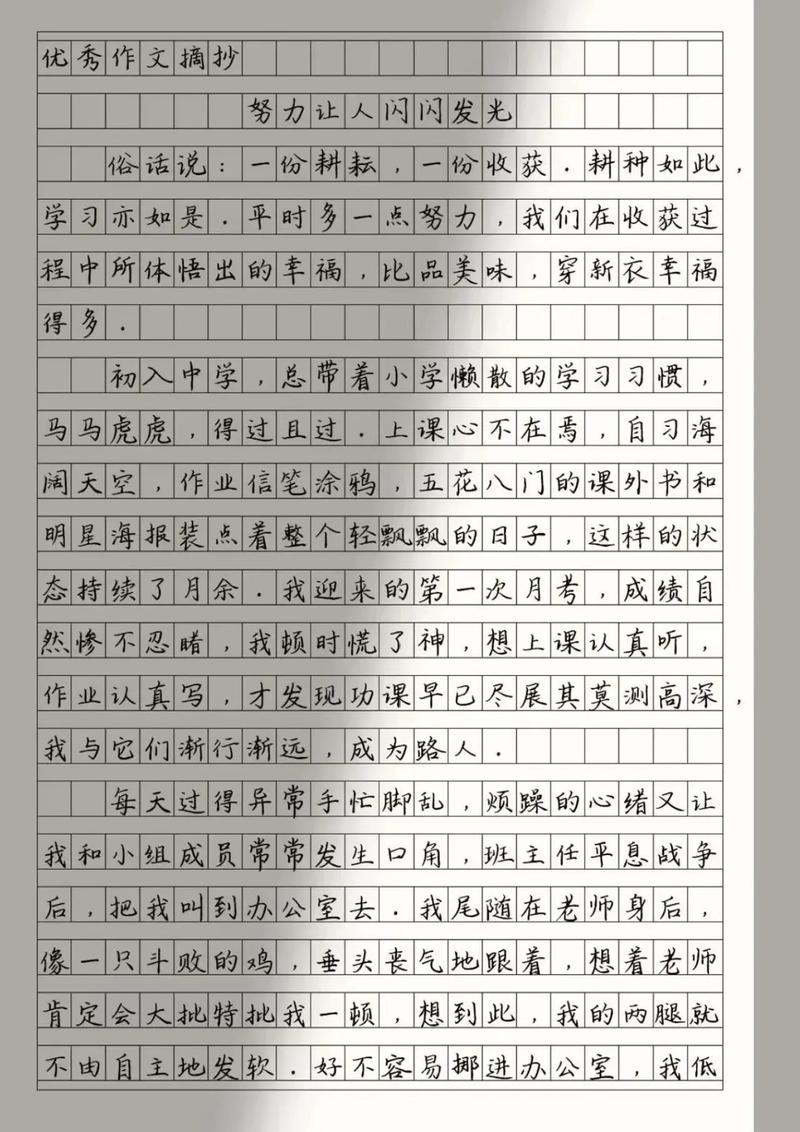 优秀作文摘抄
努力让人闪闪发光
俗话说：一份耕耘，一份收获．耕种如此，
学习亦如是．平时多一点努力，我们在收获过
程中所体悟出的幸福，比品美味，穿新衣幸福
得多．
初入中学，总带着小学懒散的学习习惯，
马马虎虎，得过且过．上课心不在焉，自习海
阔天空，作业信笔涂鸦，五花八门的课外书和
明星海报装点着整个轻飘飘的日子，这样的状
态持续了月余．我迎来的第一次月考，成绩自
然惨不忍睹，我顿时慌了神，想上课认真听，
作业认真写，才发现功课早已尽展其莫测高深，
我与它们渐行渐远，成为路人．
每天过得异常手忙脚乱，烦躁的心绪又让
我和小组成员常常发生口角，班主任平息战争
后，把我叫到办公室去．我尾随在老师身后，
像一只斗败的鸡，垂头丧气地跟着，想着老师
肯定会大批特批我一顿，想到此，我的两腿就
不由自主地发软．好不容易挪进办公室，我低